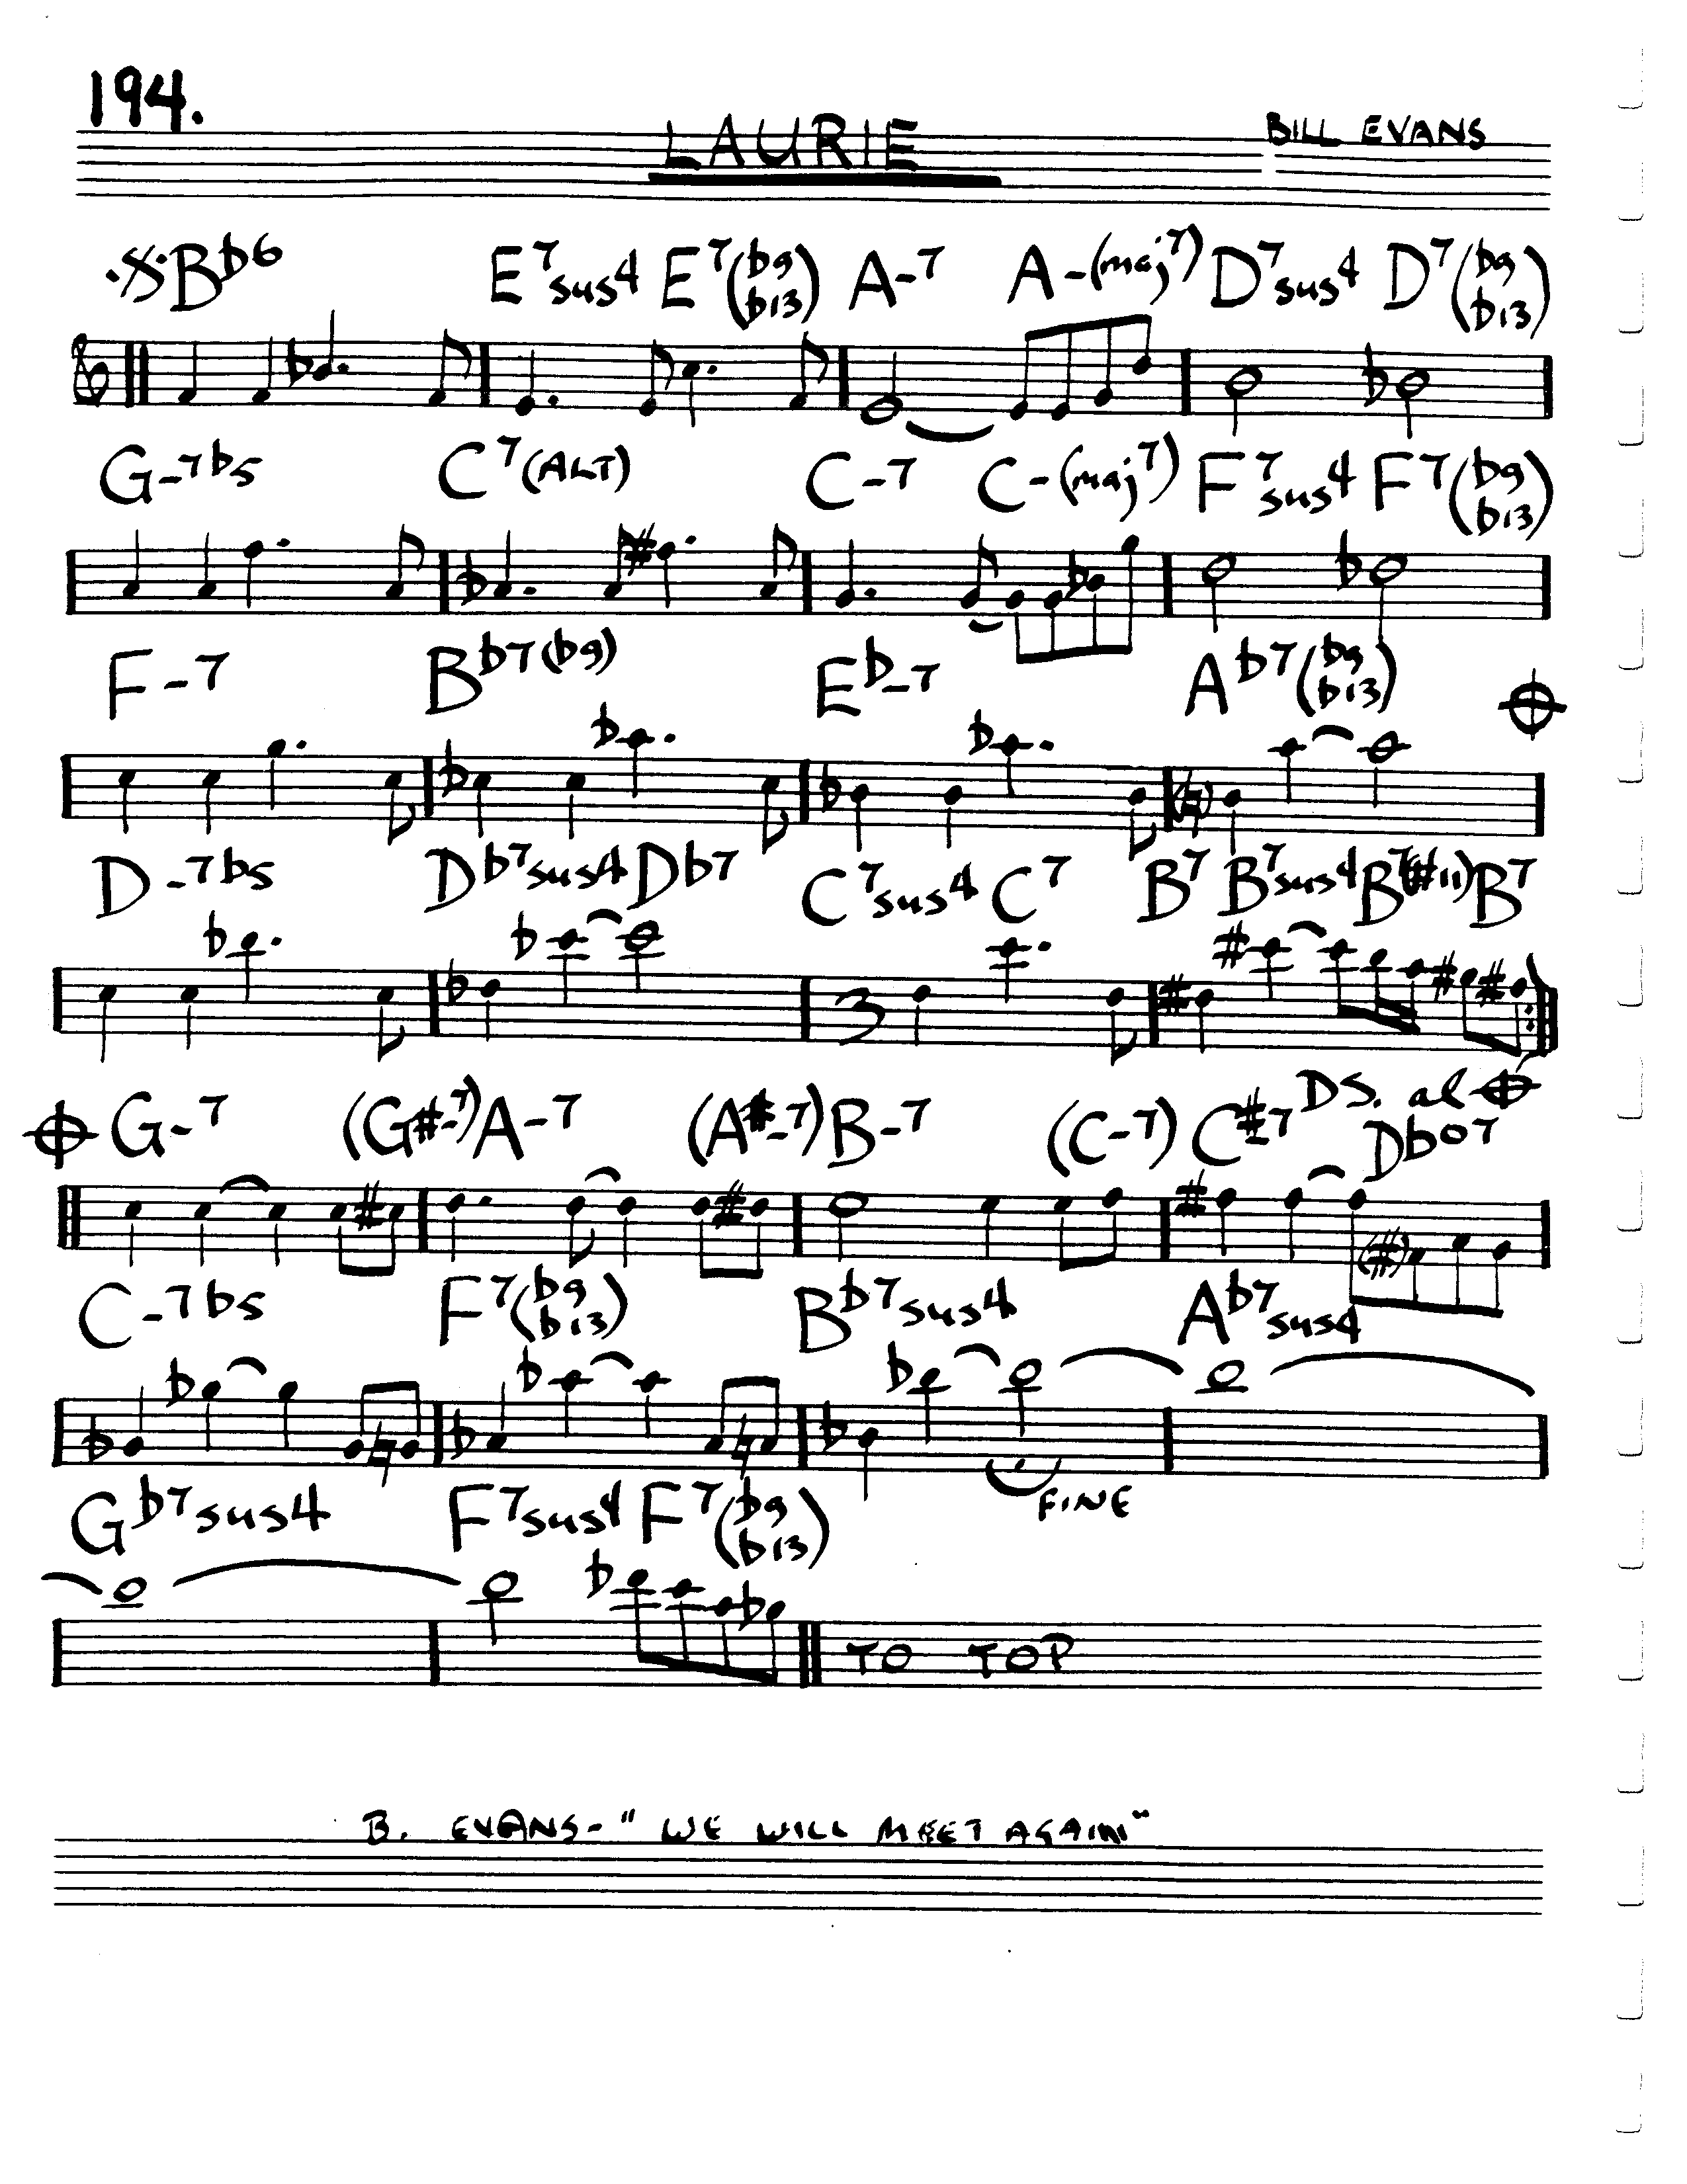 194.
LAURIE
BILL EVANS
B♭6 E7sus4 E7(♭9 ♭13) A-7 A-(maj7) D7sus4 D7(♭9 ♭13)
G-7♭5 C7(ALT) C-7 C-(maj7) F7sus4 F7(♭9 ♭13)
F-7 B♭7(♭9) E♭-7 A♭7(♭9 ♭13)
D-7♭5 D♭7sus4 D♭7 C7sus4 C7 B7 B7sus4 B7(#11) B7
3
D.S. al 𝄌
𝄌 G-7 (G#-7) A-7 (A#-7) B-7 (C-7) C#-7 D♭o7
C-7♭5 F7(♭9 ♭13) B♭7sus4 A♭7sus4
FINE
G♭7sus4 F7sus4 F7(♭9 ♭13)
TO TOP
B. EVANS - "WE WILL MEET AGAIN"